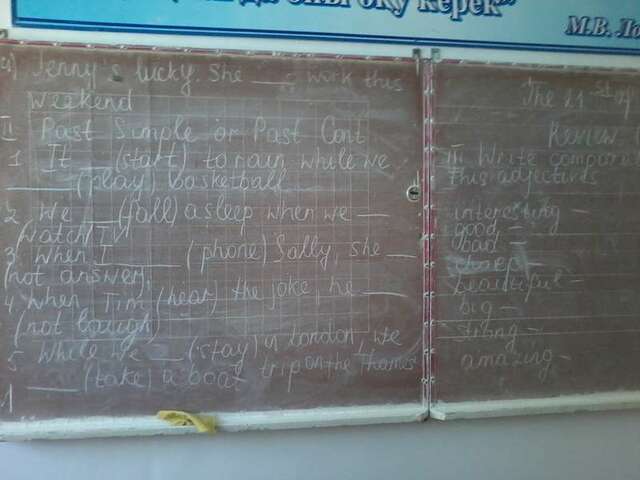 оқу керек"
М.В. Ло
4) Jenny's lucky. She ___ work this
weekend
II Past Simple or Past Cont
1 It ___ (start) to rain while we
___ (play) basketball
2 We ___ (fall) asleep when we ___
(watch) TV
3 When I ___ (phone) Sally, she ___
(not answer).
4 When Tim (hear) the joke, he ___
(not laugh)
5 While we ___ (stay) in London, we
___ (take) a boat trip on the Thames
The 21st
Review
III Write compare
this adjectives
interesting -
good -
bad -
cheap -
beautiful -
big -
strong -
amazing -